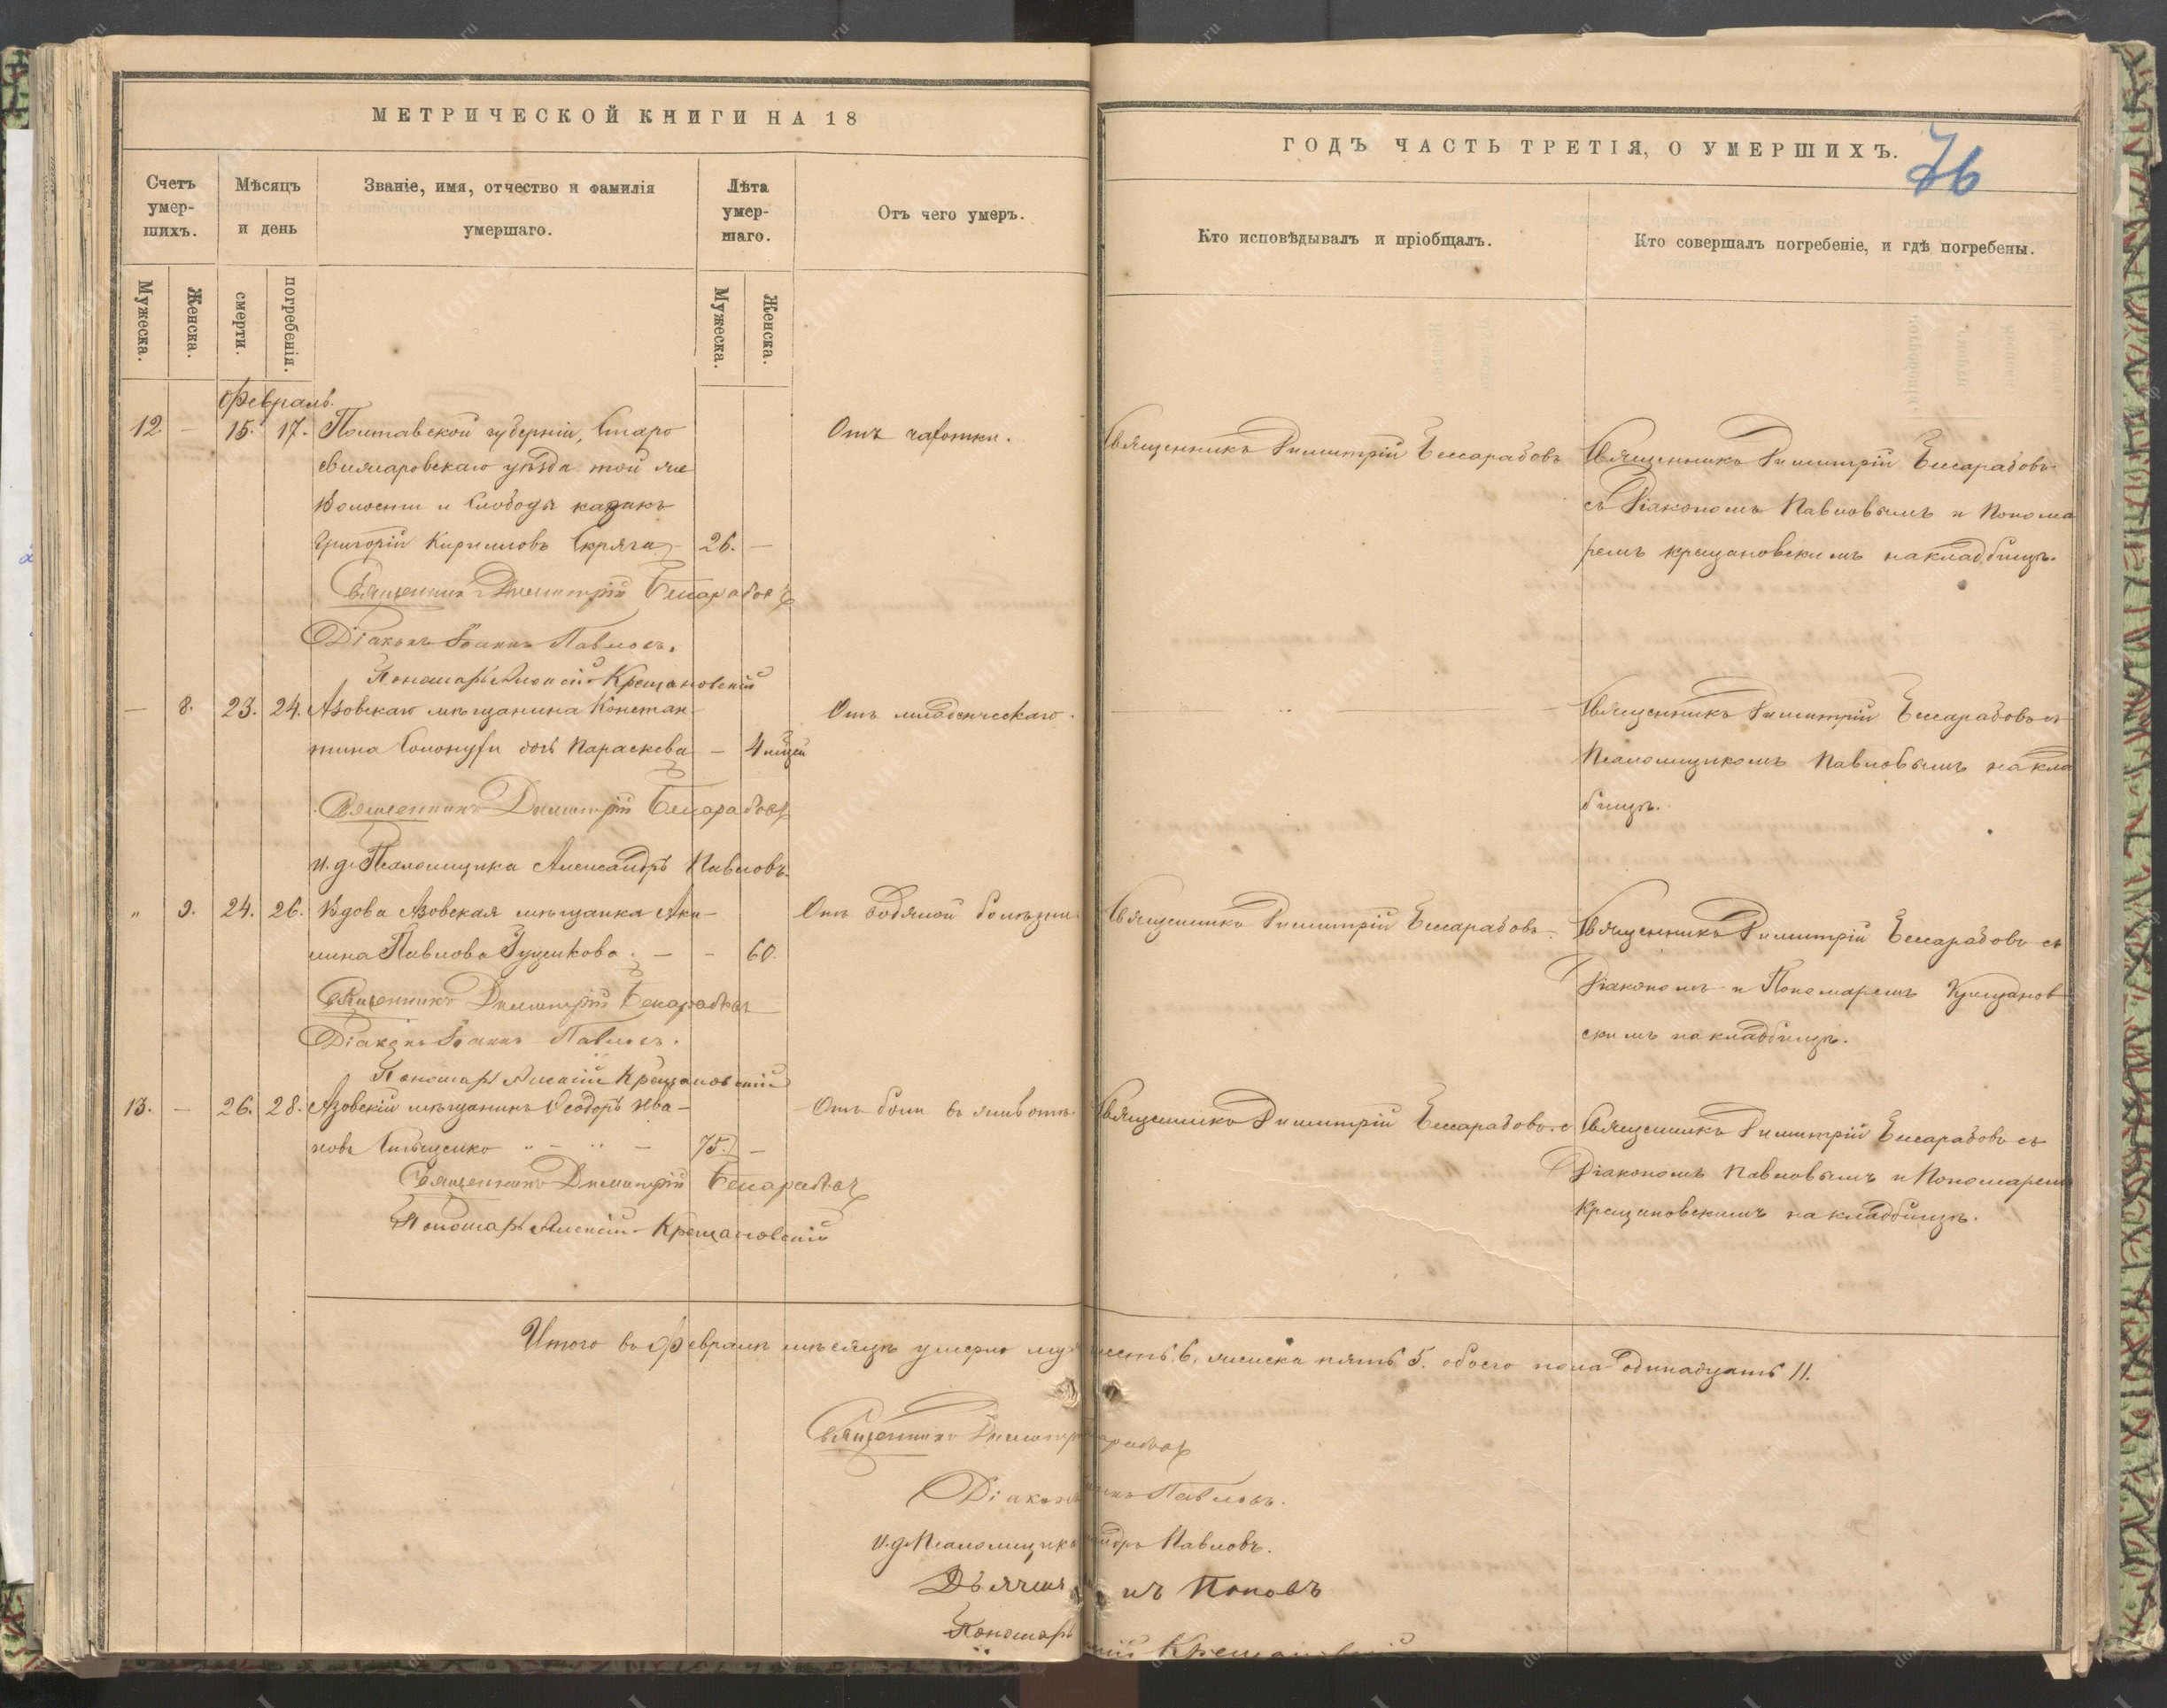 МЕТРИЧЕСКОЙ КНИГИ НА 18
Счетъ умер-шихъ.
Мѣсяцъ и день
Званіе, имя, отчество и фамилія умершаго.
Лѣта умер-шаго.
Отъ чего умеръ.
Мужеска.
Женска.
смерти.
погребенія.
Мужеска.
Женска.
Февраль.
12. – 15. 17. Полтавской губерніи, Старо Отъ чахотки.
уѣзда той же
Волости и Слободы казакъ
Григорій Кирилловъ Скряга – 26. –
Священникъ Димитрій Бессарабовъ
Діаконъ Іоаннъ Павловъ.
Пономарь Алексій Крещановскій
– 8. 23. 24. Азовскаго мѣщанина Констан- Отъ младенческаго.
тина дочь Параскева – 4
Священникъ Димитрій Бессарабовъ
и. д. Псаломщика Александръ Павловъ.
„ 9. 24. 26. Вдова Азовская мѣщанка Аки- Отъ водяной болѣзни.
лина Павлова – - 60.
Священникъ Димитрій Бессарабовъ
Діаконъ Іоаннъ Павловъ.
Пономарь Алексій Крещановскій
13. – 26. 28. Азовскій мѣщанинъ Ѳеодоръ Ива- Отъ боли въ животѣ.
новъ 75. –
Священникъ Димитрій Бессарабовъ
Пономарь Алексій Крещановскій
ГОДЪ ЧАСТЬ ТРЕТІЯ, О УМЕРШИХЪ.
76
Кто исповѣдывалъ и пріобщалъ.
Кто совершалъ погребеніе, и гдѣ погребены.
Священникъ Димитрій Бессарабовъ
Священникъ Димитрій Бессарабовъ
съ Діакономъ Павловымъ и Понома
ремъ Крещановскимъ на кладбищѣ.
Священникъ Димитрій Бессарабовъ съ
Псаломщикомъ Павловымъ на клад
бищѣ.
Священникъ Димитрій Бессарабовъ.
Священникъ Димитрій Бессарабовъ съ
Діакономъ и Пономаремъ Крещанов
скимъ на кладбищѣ.
Священникъ Димитрій Бессарабовъ.
Священникъ Димитрій Бессарабовъ съ
Діакономъ Павловымъ и Пономаремъ
Крещановскимъ на кладбищѣ.
Итого въ Февралѣ мѣсяцѣ умерло шесть 6, женска пять 5. обоего пола одинадцать 11.
Священникъ
Діаконъ Павловъ.
и. д. Псаломщика Павловъ.
Поповъ
Пономарь Крещановскій